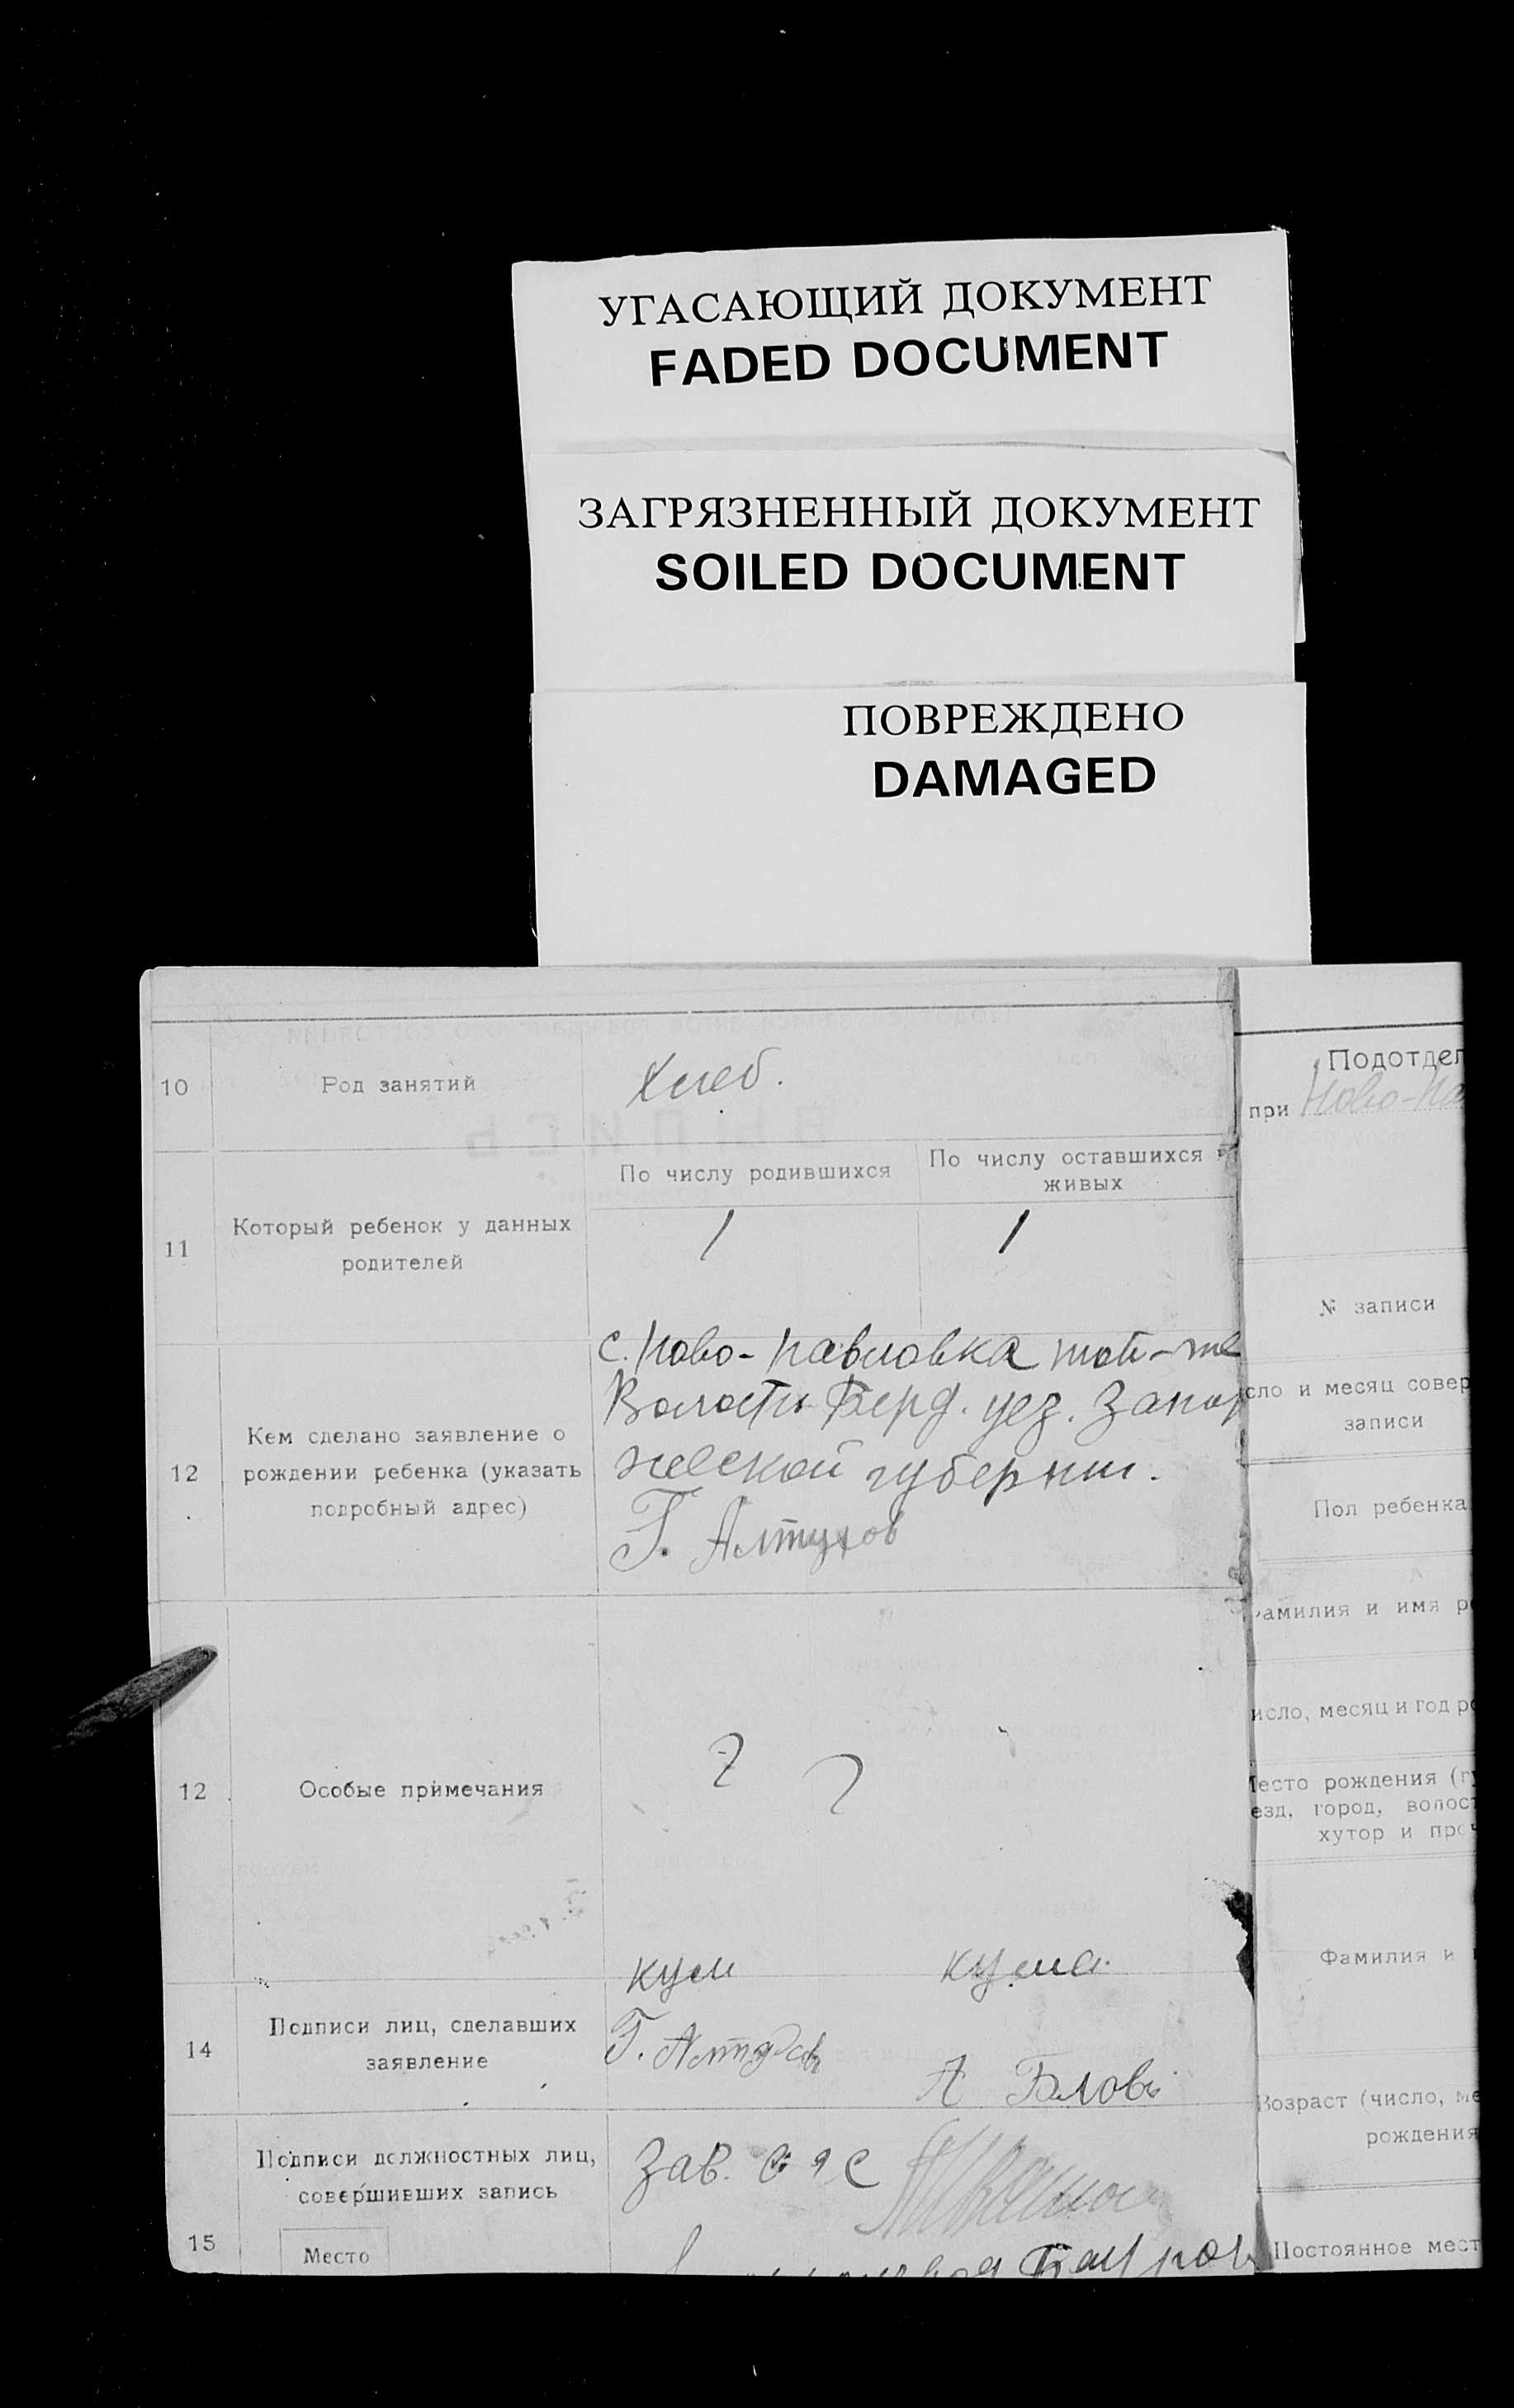 УГАСАЮЩИЙ ДОКУМЕНТ
FADED DOCUMENT
ЗАГРЯЗНЕННЫЙ ДОКУМЕНТ
SOILED DOCUMENT
ПОВРЕЖДЕНО
DAMAGED
10 Род занятий Хлеб.
11 Который ребенок у данных
родителей
По числу родившихся
По числу оставшихся в
живых
1 1
12 Кем сделано заявление о
рождении ребенка (указать
подробный адрес)
с. Ново-Павловка той-же
Волости Берд. уез. Запор
жской губернии.
Г. Алтухов
12 Особые примечания
кум кума
14 Подписи лиц, сделавших
заявление
Г. Алтухов
А
15 Подписи должностных лиц,
совершивших запись
Зав.
Место
Подотдел
при Ново-Па
№ записи
сло и месяц совер
записи
Пол ребенка
амилия и имя р
исло, месяц и год р
есто рождения (г
езд, город, волост
хутор и проч
Фамилия и
Возраст (число, ме
рождения
Постоянное мест